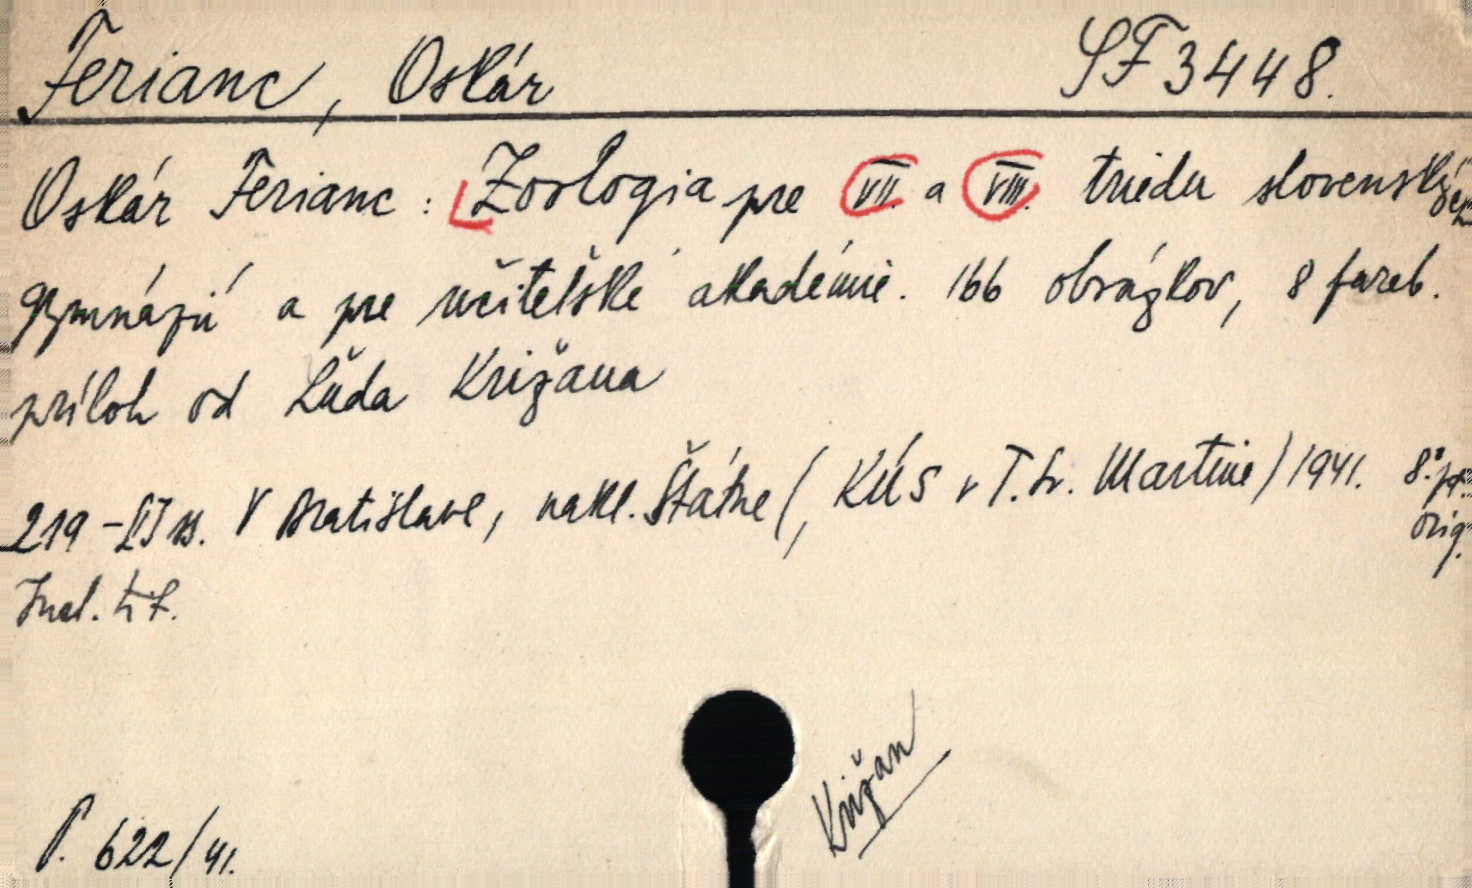 Ferianc, Oskár SF 3448.
Oskár Ferianc: Zoologia pre VII. a VIII. triedu slovenských
gymnázií a pre učiteľské akadémie. 166 obrázkov, 8 fareb.
príloh od Luďa Križana
219 - [I] s. V Bratislave, nakl. Štátne (, KÚS v T. Sv. Martine) 1941. 8°.
orig.
P. 622/41.
Križan